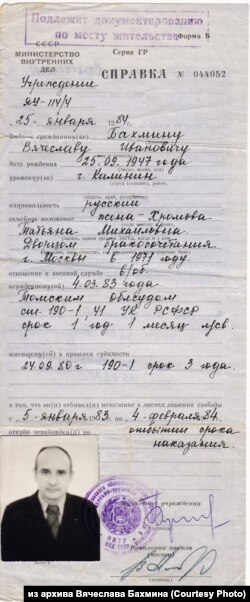 Подлежит документированию
по месту жительства
Форма Б
СССР
МИНИСТЕРСТВО
ВНУТРЕННИХ
ДЕЛ
Серия ГР
СПРАВКА № 044052
Учреждение
ЯУ-114/4
25 января 1984.
Выдана гражданину(ке) Бахмину
Вячеславу Ивановичу
дата рождения 25.09.1947 года
уроженцу(ке) г. Калинин
национальность русский
семейное положение жена-Хромова
Татьяна Михайловна
Дворцом бракосочетания
г. Москвы в 1971 году.
отношение к военной службе в/об.
осужденному(ой) 4.03.83 года
Томским облсудом
ст. 190-1, 41 УК РСФСР
срок 1 год 1 месяц л/св.
имеющему(ей) в прошлом судимости
24.09.80 г 190-1 срок 3 года.
в том, что он(а) отбывал(а) наказание в местах лишения свободы
с 5 января 83. по 4 февраля 84.
откуда освобожден(а) по отбытии срока
наказания.
Начальник отдела
(части)
из архива Вячеслава Бахмина (Courtesy Photo)